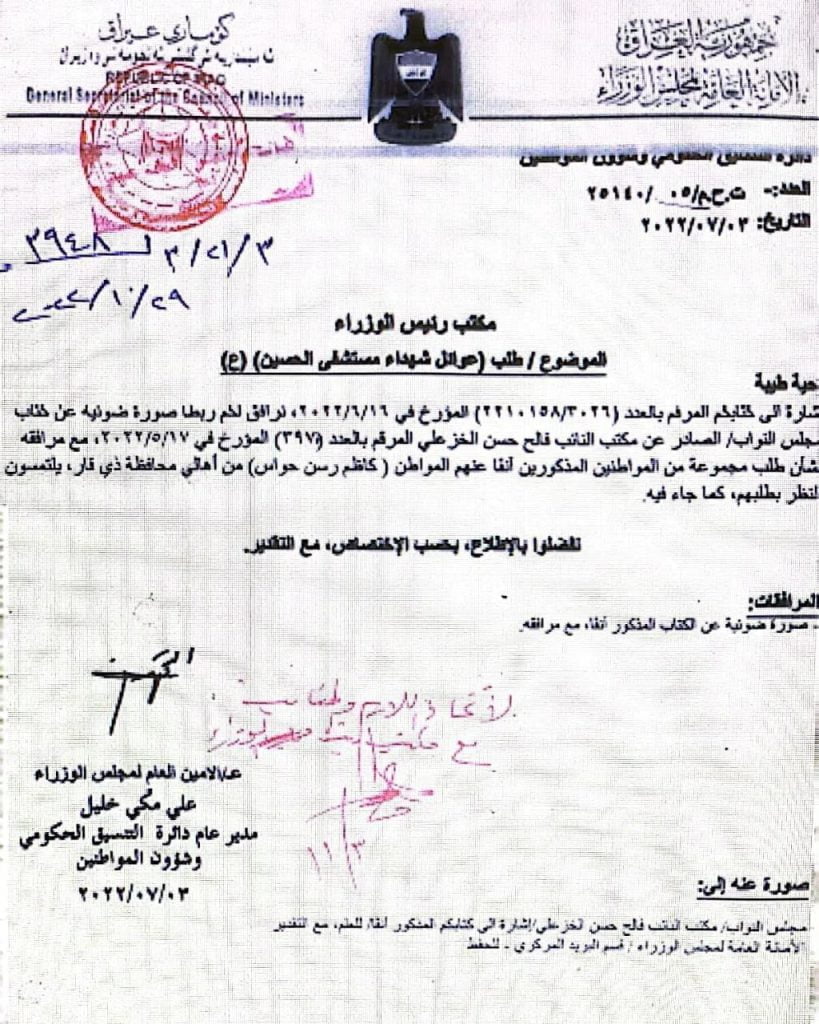 جمهورية العراق
الأمانة العامة لمجلس الوزراء
كوماري عيراق
REPUBLIC OF IRAQ
General Secretariat of the Council of Ministers
دائرة التنسيق الحكومي وشؤون المواطنين
العدد:- ت.ح.م/٠٥/ ٢٥١٤٠
التاريخ: ٢٠٢٢/٠٧/٠٣
٣٩٤٨
٣/٢١/٣
٢٩/١٠/
مكتب رئيس الوزراء
الموضوع / طلب (عوائل شهداء مستشفى الحسين) (ع)
حية طيبة
شارة الى كتابكم المرقم بالعدد (٢٢١٠١٥٨/٣٠٢٦) المؤرخ في ٢٠٢٢/٦/١٦، نرافق لكم ربطا صورة ضوئية عن كتاب
جلس النواب/ الصادر عن مكتب النائب فالح حسن الخزعلي المرقم بالعدد (٣٩٧) المؤرخ في ٢٠٢٢/٥/١٧، مع مرافقه
شأن طلب مجموعة من المواطنين المذكورين آنفا عنهم المواطن ( كاظم رسن حواس) من أهالي محافظة ذي قار، يلتمسون
لنظر بطلبهم، كما جاء فيه.
تفضلوا بالإطلاع، بحسب الإختصاص، مع التقدير.
المرافقات:
- صورة ضوئية عن الكتاب المذكور آنفا، مع مرافقه.
لأتخاذ اللازم
مع مكتب
١١/٣
ع/الامين العام لمجلس الوزراء
علي مكي خليل
مدير عام دائرة التنسيق الحكومي
وشؤون المواطنين
٢٠٢٢/٠٧/٠٣
صورة عنه إلى:
- مجلس النواب/ مكتب النائب فالح حسن الخزعلي/إشارة الى كتابكم المذكور آنفا/ للعلم، مع التقدير
- الأمانة العامة لمجلس الوزراء / قسم البريد المركزي - للحفظ